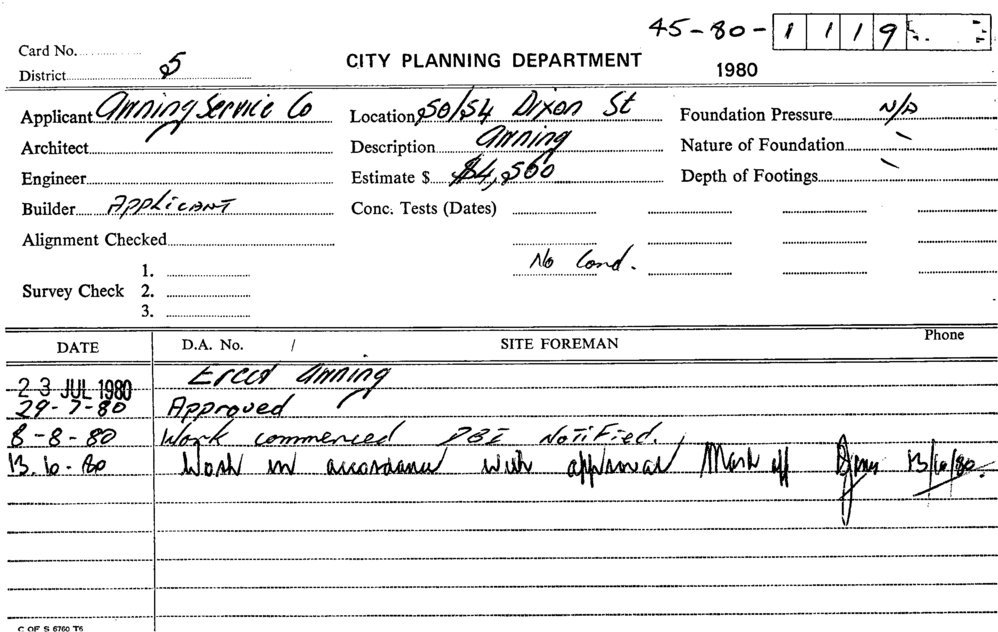 45-80-1119
Card No.
District 5
CITY PLANNING DEPARTMENT
1980
Applicant Awning Service Co
Location 50/54 Dixon St
Foundation Pressure N/A
Architect
Description Awning
Nature of Foundation
Engineer
Estimate $ $4,500
Depth of Footings
Builder Applicant
Conc. Tests (Dates)
Alignment Checked
No Cond.
1.
Survey Check 2.
3.
DATE D.A. No. / SITE FOREMAN Phone
23 JUL 1980 Erect Awning
29-7-80 Approved
8-8-80 Work commenced DBI Notified.
13.10.80 Work in accordance with approval Mark off 13/10/80.
C OF S 6760 T6